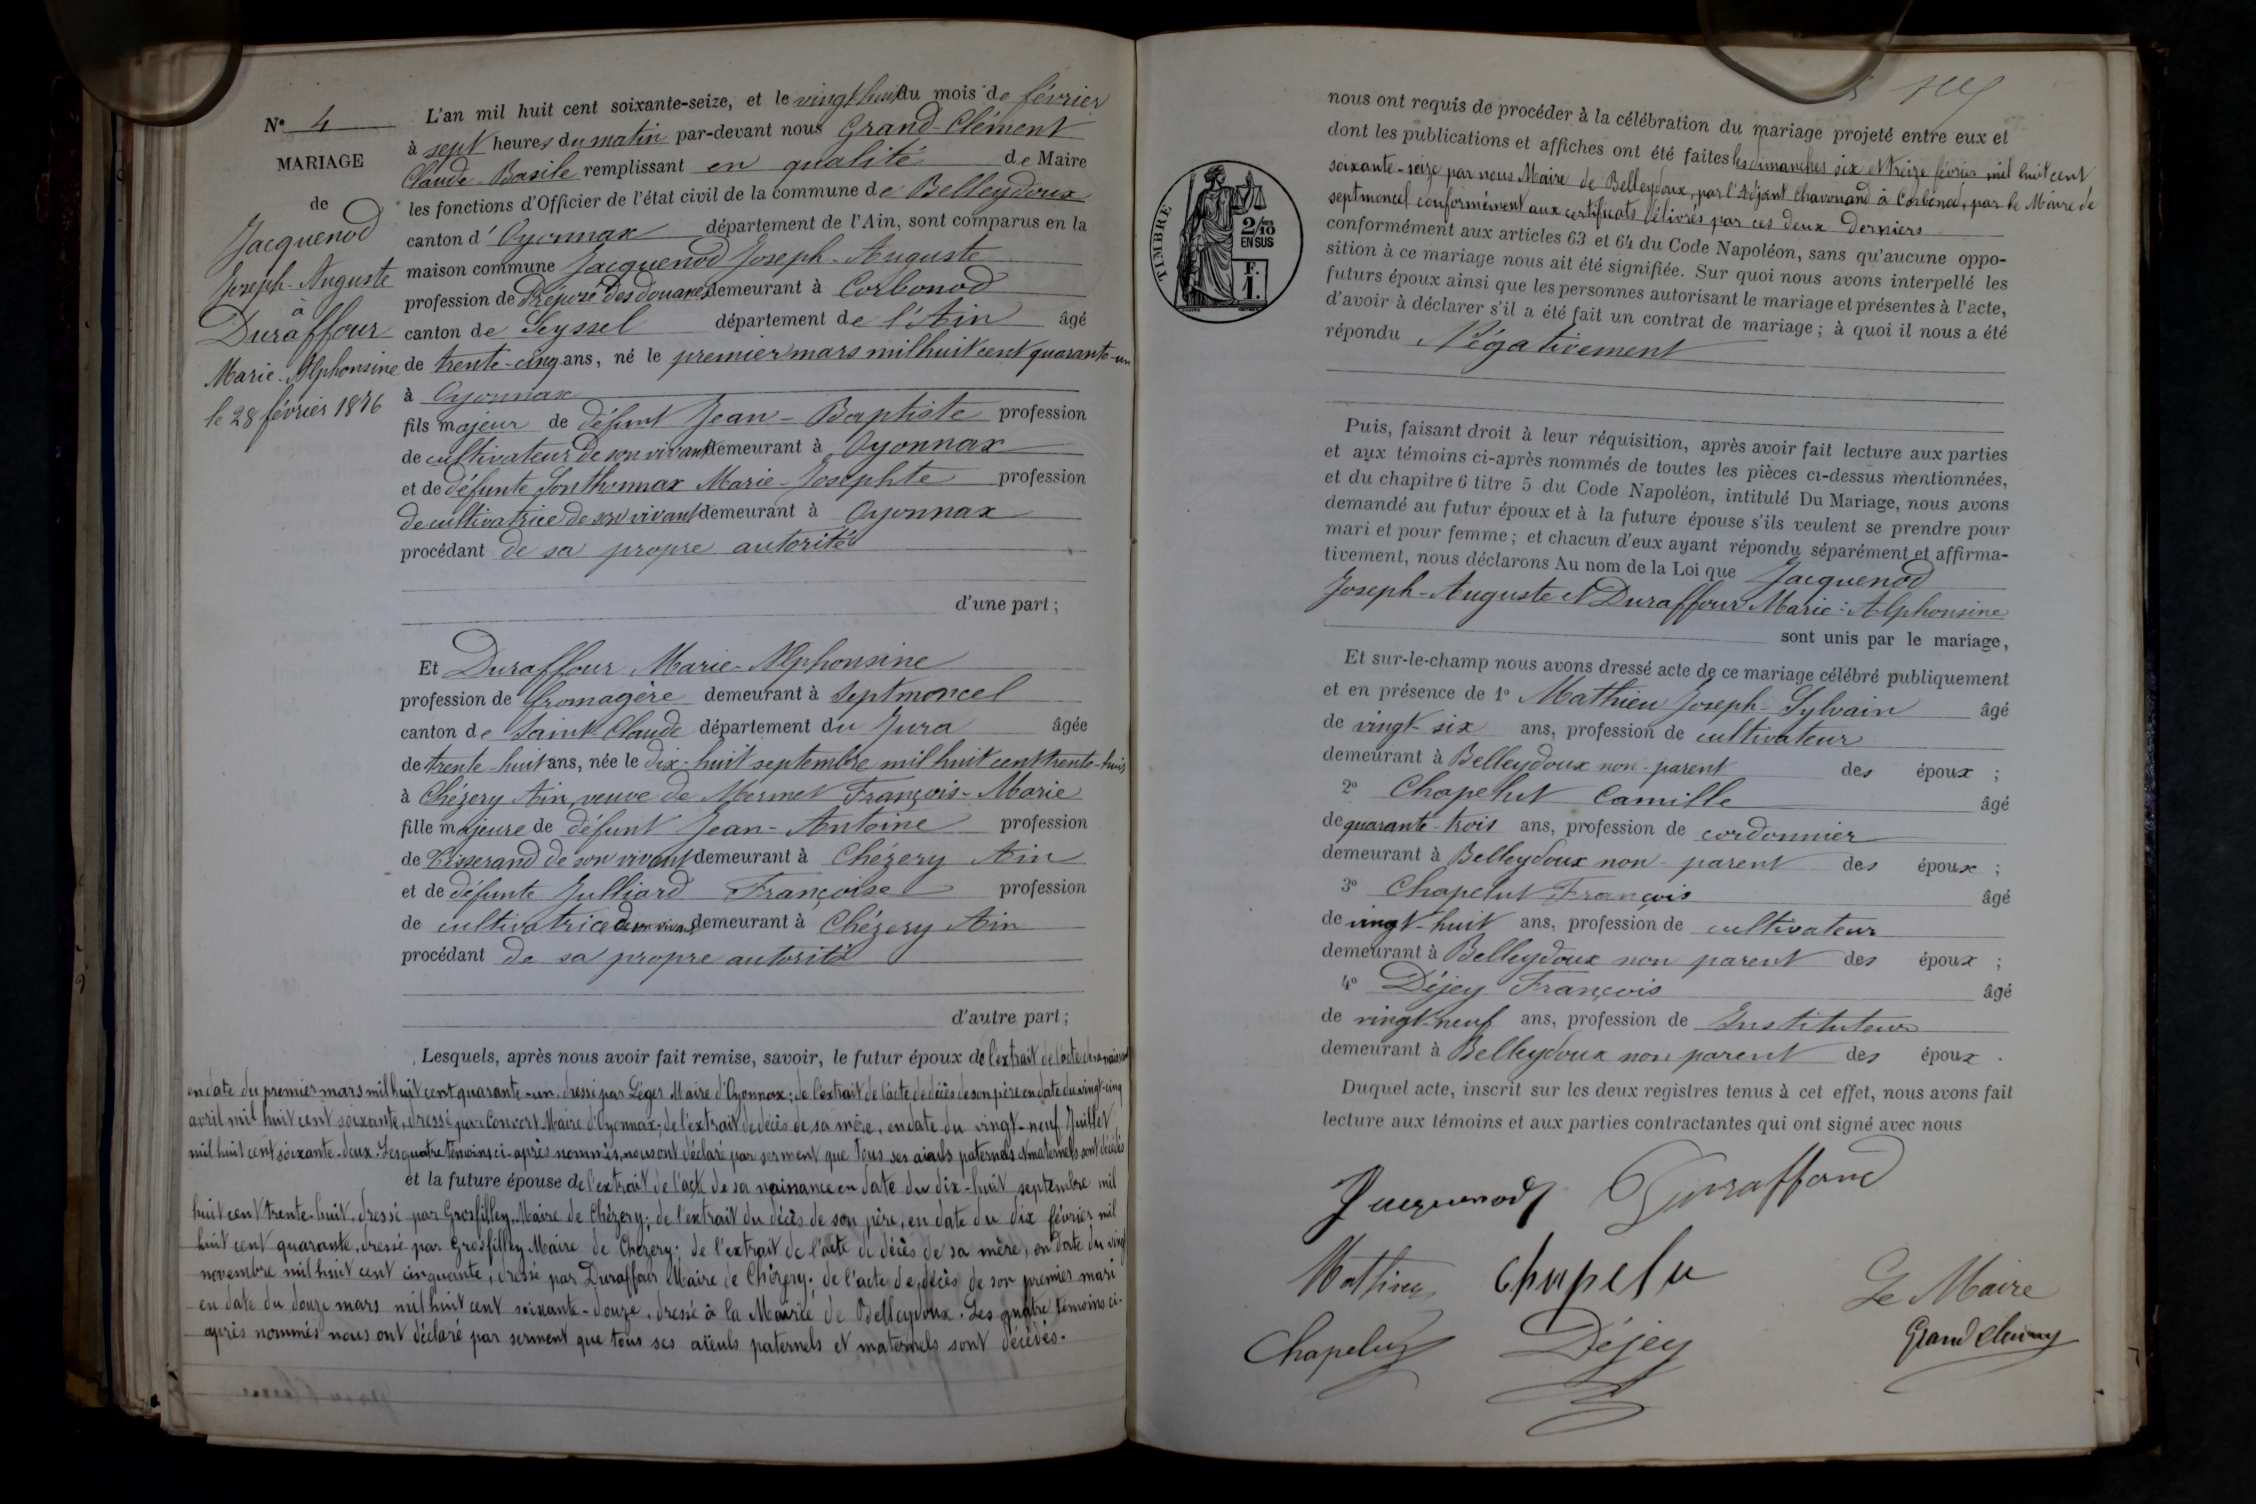 N° 4
MARIAGE
de
Jacquenod
Joseph-Auguste
à
Duraffour
Marie-Alphonsine
le 28 février 1876
L'an mil huit cent soixante-seize, et le vingt huit du mois de février
à sept heures du matin par-devant nous Grand-Clément
Claude Basile remplissant en qualité de Maire
les fonctions d'Officier de l'état civil de la commune de Belleydoux
canton d'Oyonnax département de l'Ain, sont comparus en la
maison commune Jacquenod Joseph-Auguste
profession de Préposé des douanes demeurant à Corbonod
canton de Seyssel département de l'Ain âgé
de trente-cinq ans, né le premier mars mil huit cent quarante-un
à Oyonnax
fils majeur de défunt Jean-Baptiste profession
de cultivateur de son vivant demeurant à Oyonnax
et de défunte Sonthonnax Marie-Josephte profession
de cultivatrice de son vivant demeurant à Oyonnax
procédant de sa propre autorité
d'une part;
Et Duraffour Marie-Alphonsine
profession de fromagère demeurant à Septmoncel
canton de Saint-Claude département du Jura âgée
de trente-huit ans, née le dix-huit septembre mil huit cent trente-huit
à Chézery Ain, veuve de Mermet François-Marie
fille majeure de défunt Jean-Antoine profession
de Tisserand de son vivant demeurant à Chézery Ain
et de défunte Julliard Françoise profession
de cultivatrice de son vivant demeurant à Chézery Ain
procédant de sa propre autorité
d'autre part;
Lesquels, après nous avoir fait remise, savoir, le futur époux de l'extrait de l'acte de sa naissance
en date du premier mars mil huit cent quarante-un, dressé par Léger Maire d'Oyonnax; de l'extrait de l'acte de décès de son père en date du vingt-cinq
avril mil huit cent soixante, dressé par Convert Maire d'Oyonnax; de l'extrait de décès de sa mère, en date du vingt-neuf Juillet
mil huit cent soixante-deux. Les quatre témoins ci-après nommés, nous ont déclaré par serment que tous ses aïeuls paternels et maternels sont décédés
et la future épouse de l'extrait de l'acte de sa naissance en date du dix-huit septembre mil
huit cent trente-huit, dressé par Grosfilley Maire de Chézery; de l'extrait du décès de son père, en date du dix février mil
huit cent quarante, dressé par Grosfilley Maire de Chézery; de l'extrait de l'acte de décès de sa mère, en date du vingt
novembre mil huit cent cinquante, dressé par Duraffour Maire de Chézery; de l'acte de décès de son premier mari
en date du douze mars mil huit cent soixante-douze, dressé à la Mairie de Belleydoux. Les quatre témoins ci-
après nommés nous ont déclaré par serment que tous ses aïeuls paternels et maternels sont décédés.
TIMBRE
2/10
EN SUS
F.
1.
nous ont requis de procéder à la célébration du mariage projeté entre eux et
dont les publications et affiches ont été faites les dimanches six et treize février mil huit cent
soixante-seize par nous Maire de Belleydoux, par l'Adjoint Chavouand à Corbonod, par le Maire de
septmoncel conformément aux certificats délivrés par ces deux derniers
conformément aux articles 63 et 64 du Code Napoléon, sans qu'aucune oppo-
sition à ce mariage nous ait été signifiée. Sur quoi nous avons interpellé les
futurs époux ainsi que les personnes autorisant le mariage et présentes à l'acte,
d'avoir à déclarer s'il a été fait un contrat de mariage; à quoi il nous a été
répondu Négativement
Puis, faisant droit à leur réquisition, après avoir fait lecture aux parties
et aux témoins ci-après nommés de toutes les pièces ci-dessus mentionnées,
et du chapitre 6 titre 5 du Code Napoléon, intitulé Du Mariage, nous avons
demandé au futur époux et à la future épouse s'ils veulent se prendre pour
mari et pour femme; et chacun d'eux ayant répondu séparément et affirma-
tivement, nous déclarons Au nom de la Loi que Jacquenod
Joseph-Auguste et Duraffour Marie-Alphonsine
sont unis par le mariage,
Et sur-le-champ nous avons dressé acte de ce mariage célébré publiquement
et en présence de 1° Mathieu Joseph-Sylvain âgé
de vingt-six ans, profession de cultivateur
demeurant à Belleydoux non-parent des époux;
2° Chapelut Camille âgé
de quarante-trois ans, profession de cordonnier
demeurant à Belleydoux non-parent des époux;
3° Chapelut François âgé
de vingt-huit ans, profession de cultivateur
demeurant à Belleydoux non parent des époux;
4° Déjey François âgé
de vingt-neuf ans, profession de Instituteur
demeurant à Belleydoux non parent des époux.
Duquel acte, inscrit sur les deux registres tenus à cet effet, nous avons fait
lecture aux témoins et aux parties contractantes qui ont signé avec nous
Jacquenod Duraffour
Mathieu Chapelu
Le Maire
Chapelut Déjey Grandclément